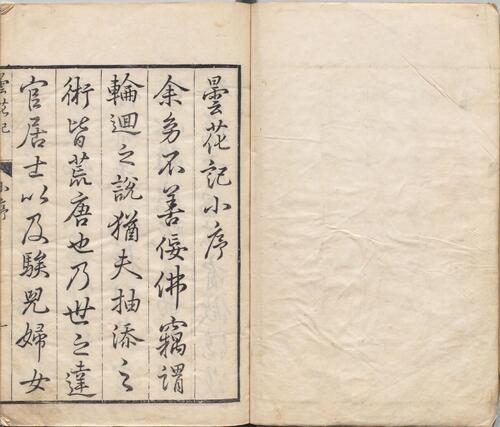 曇花記小序
余多不善佞佛竊謂
輪迴之說猶夫抽添之
術皆荒唐也乃世之達
官居士以及騃兒婦女
曇花記
小序
一